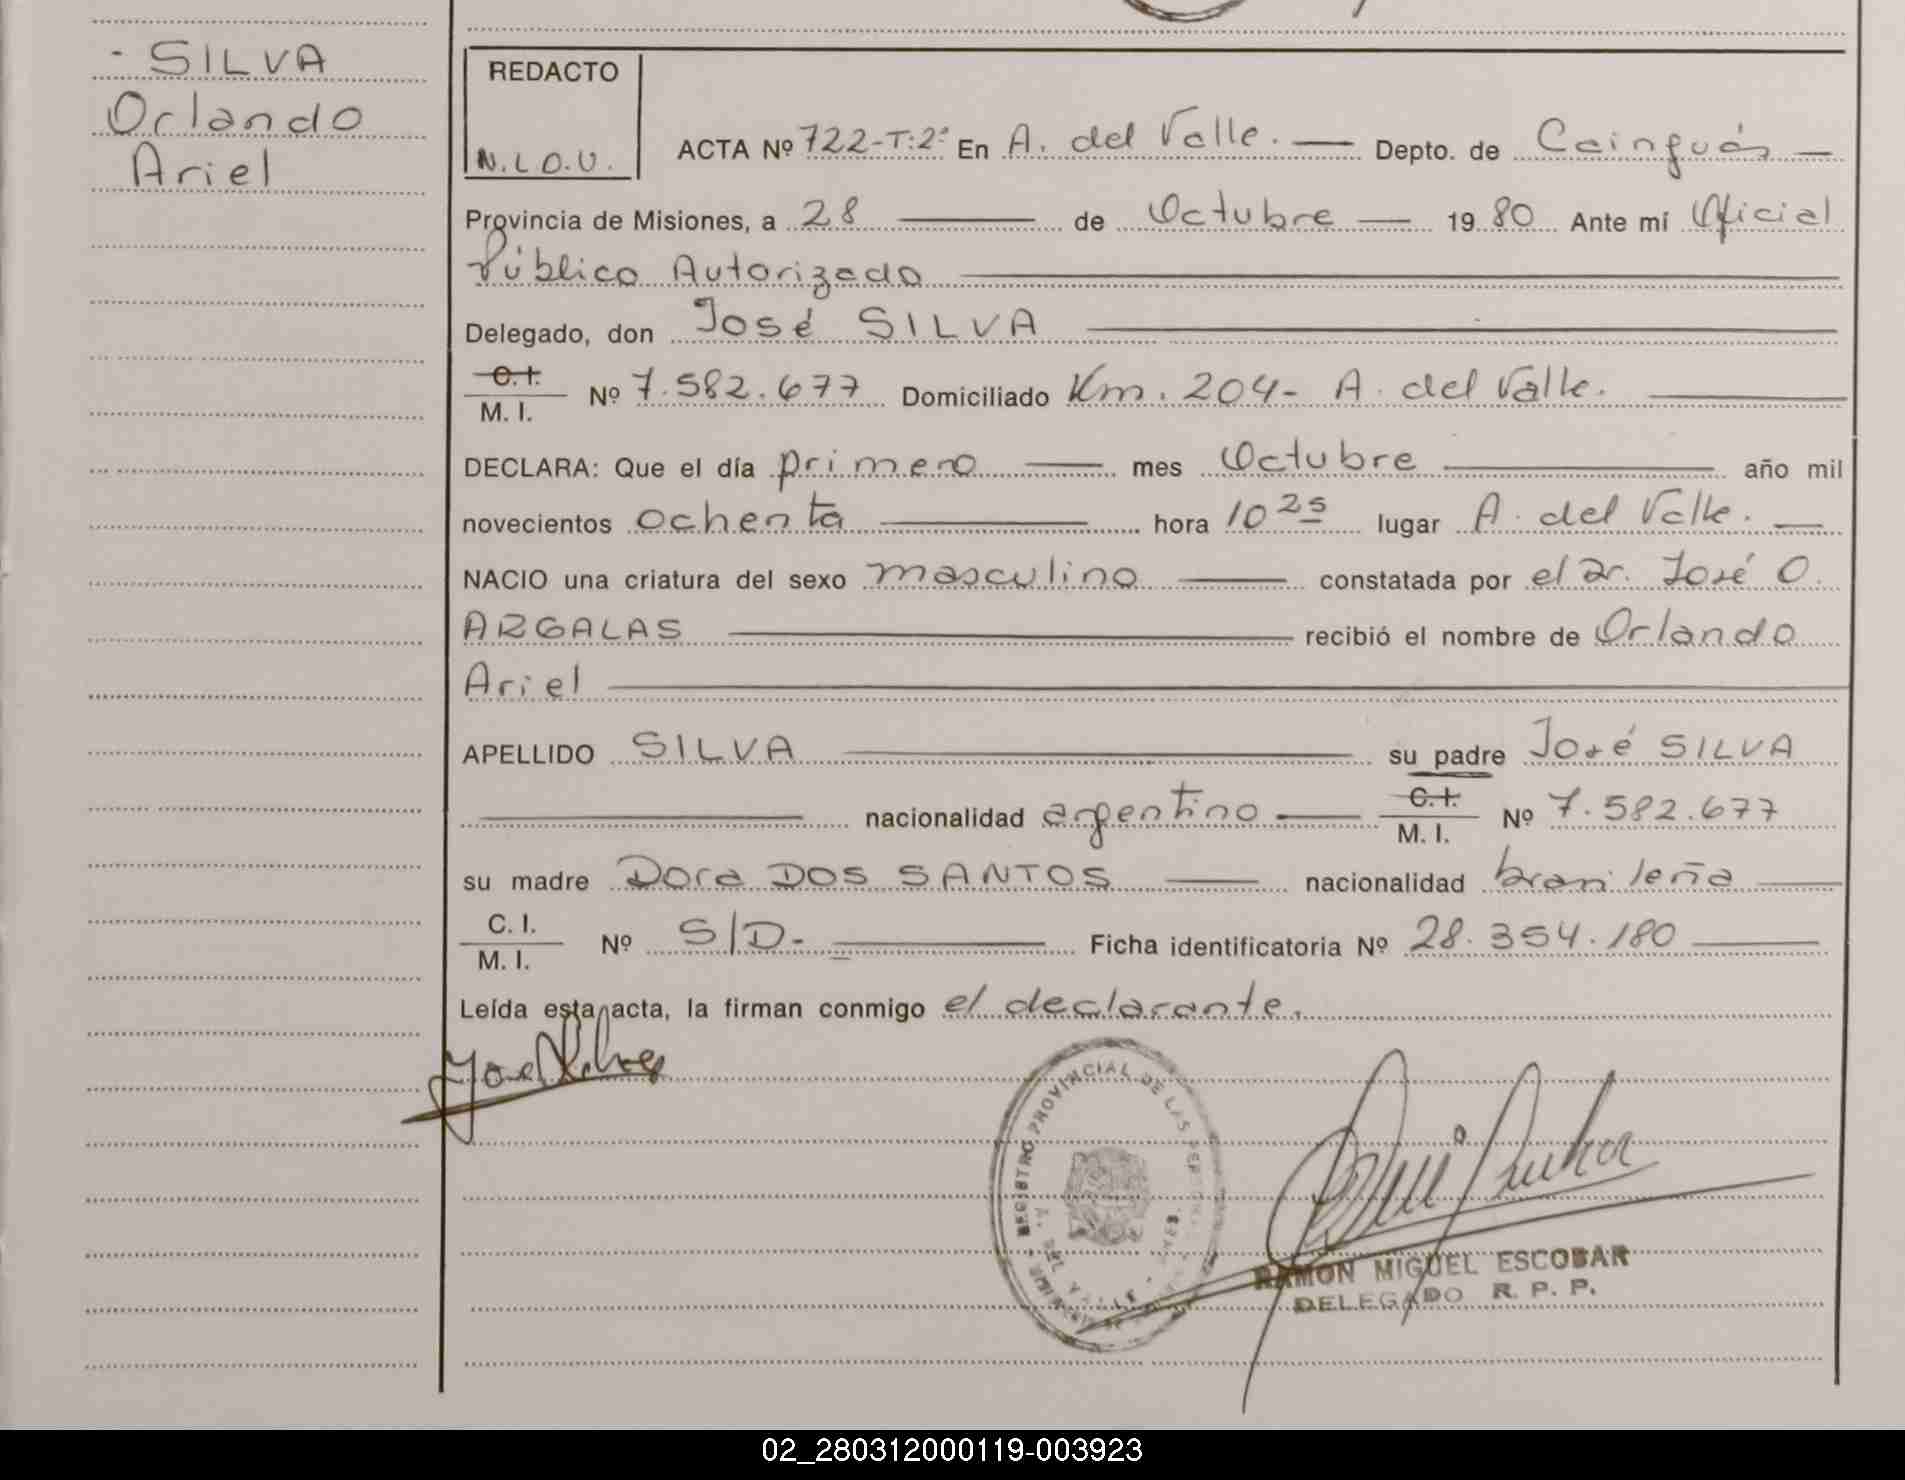 - SILVA
Orlando
Ariel
REDACTO
N.L.O.U.
ACTA Nº 722-T:2º En A. del Valle. Depto. de Cainguás
Provincia de Misiones, a 28 de Octubre 1980 Ante mí Oficial
Público Autorizado
Delegado, don José SILVA
C.I.
M. I. Nº 7.582.677 Domiciliado Km. 204- A. del Valle.
DECLARA: Que el día primero mes Octubre año mil
novecientos ochenta hora 10 25 lugar A. del Valle.
NACIO una criatura del sexo masculino constatada por el Dr. José O.
ARGALAS recibió el nombre de Orlando
Ariel
APELLIDO SILVA su padre José SILVA
nacionalidad argentino C.I. M. I. Nº 7.582.677
su madre Dora DOS SANTOS nacionalidad brasileña
C. I.
M. I. Nº S/D.- Ficha identificatoria Nº 28.354.180
Leída esta acta, la firman conmigo el declarante.
REGISTRO PROVINCIAL DE LAS
A. DEL VALLE
RAMON MIGUEL ESCOBAR
DELEGADO R. P. P.
02_280312000119-003923